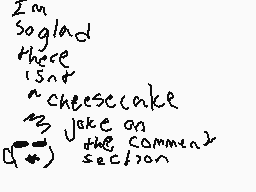 Im
so glad
there
isnt
a cheesecake
joke on
the comment
section